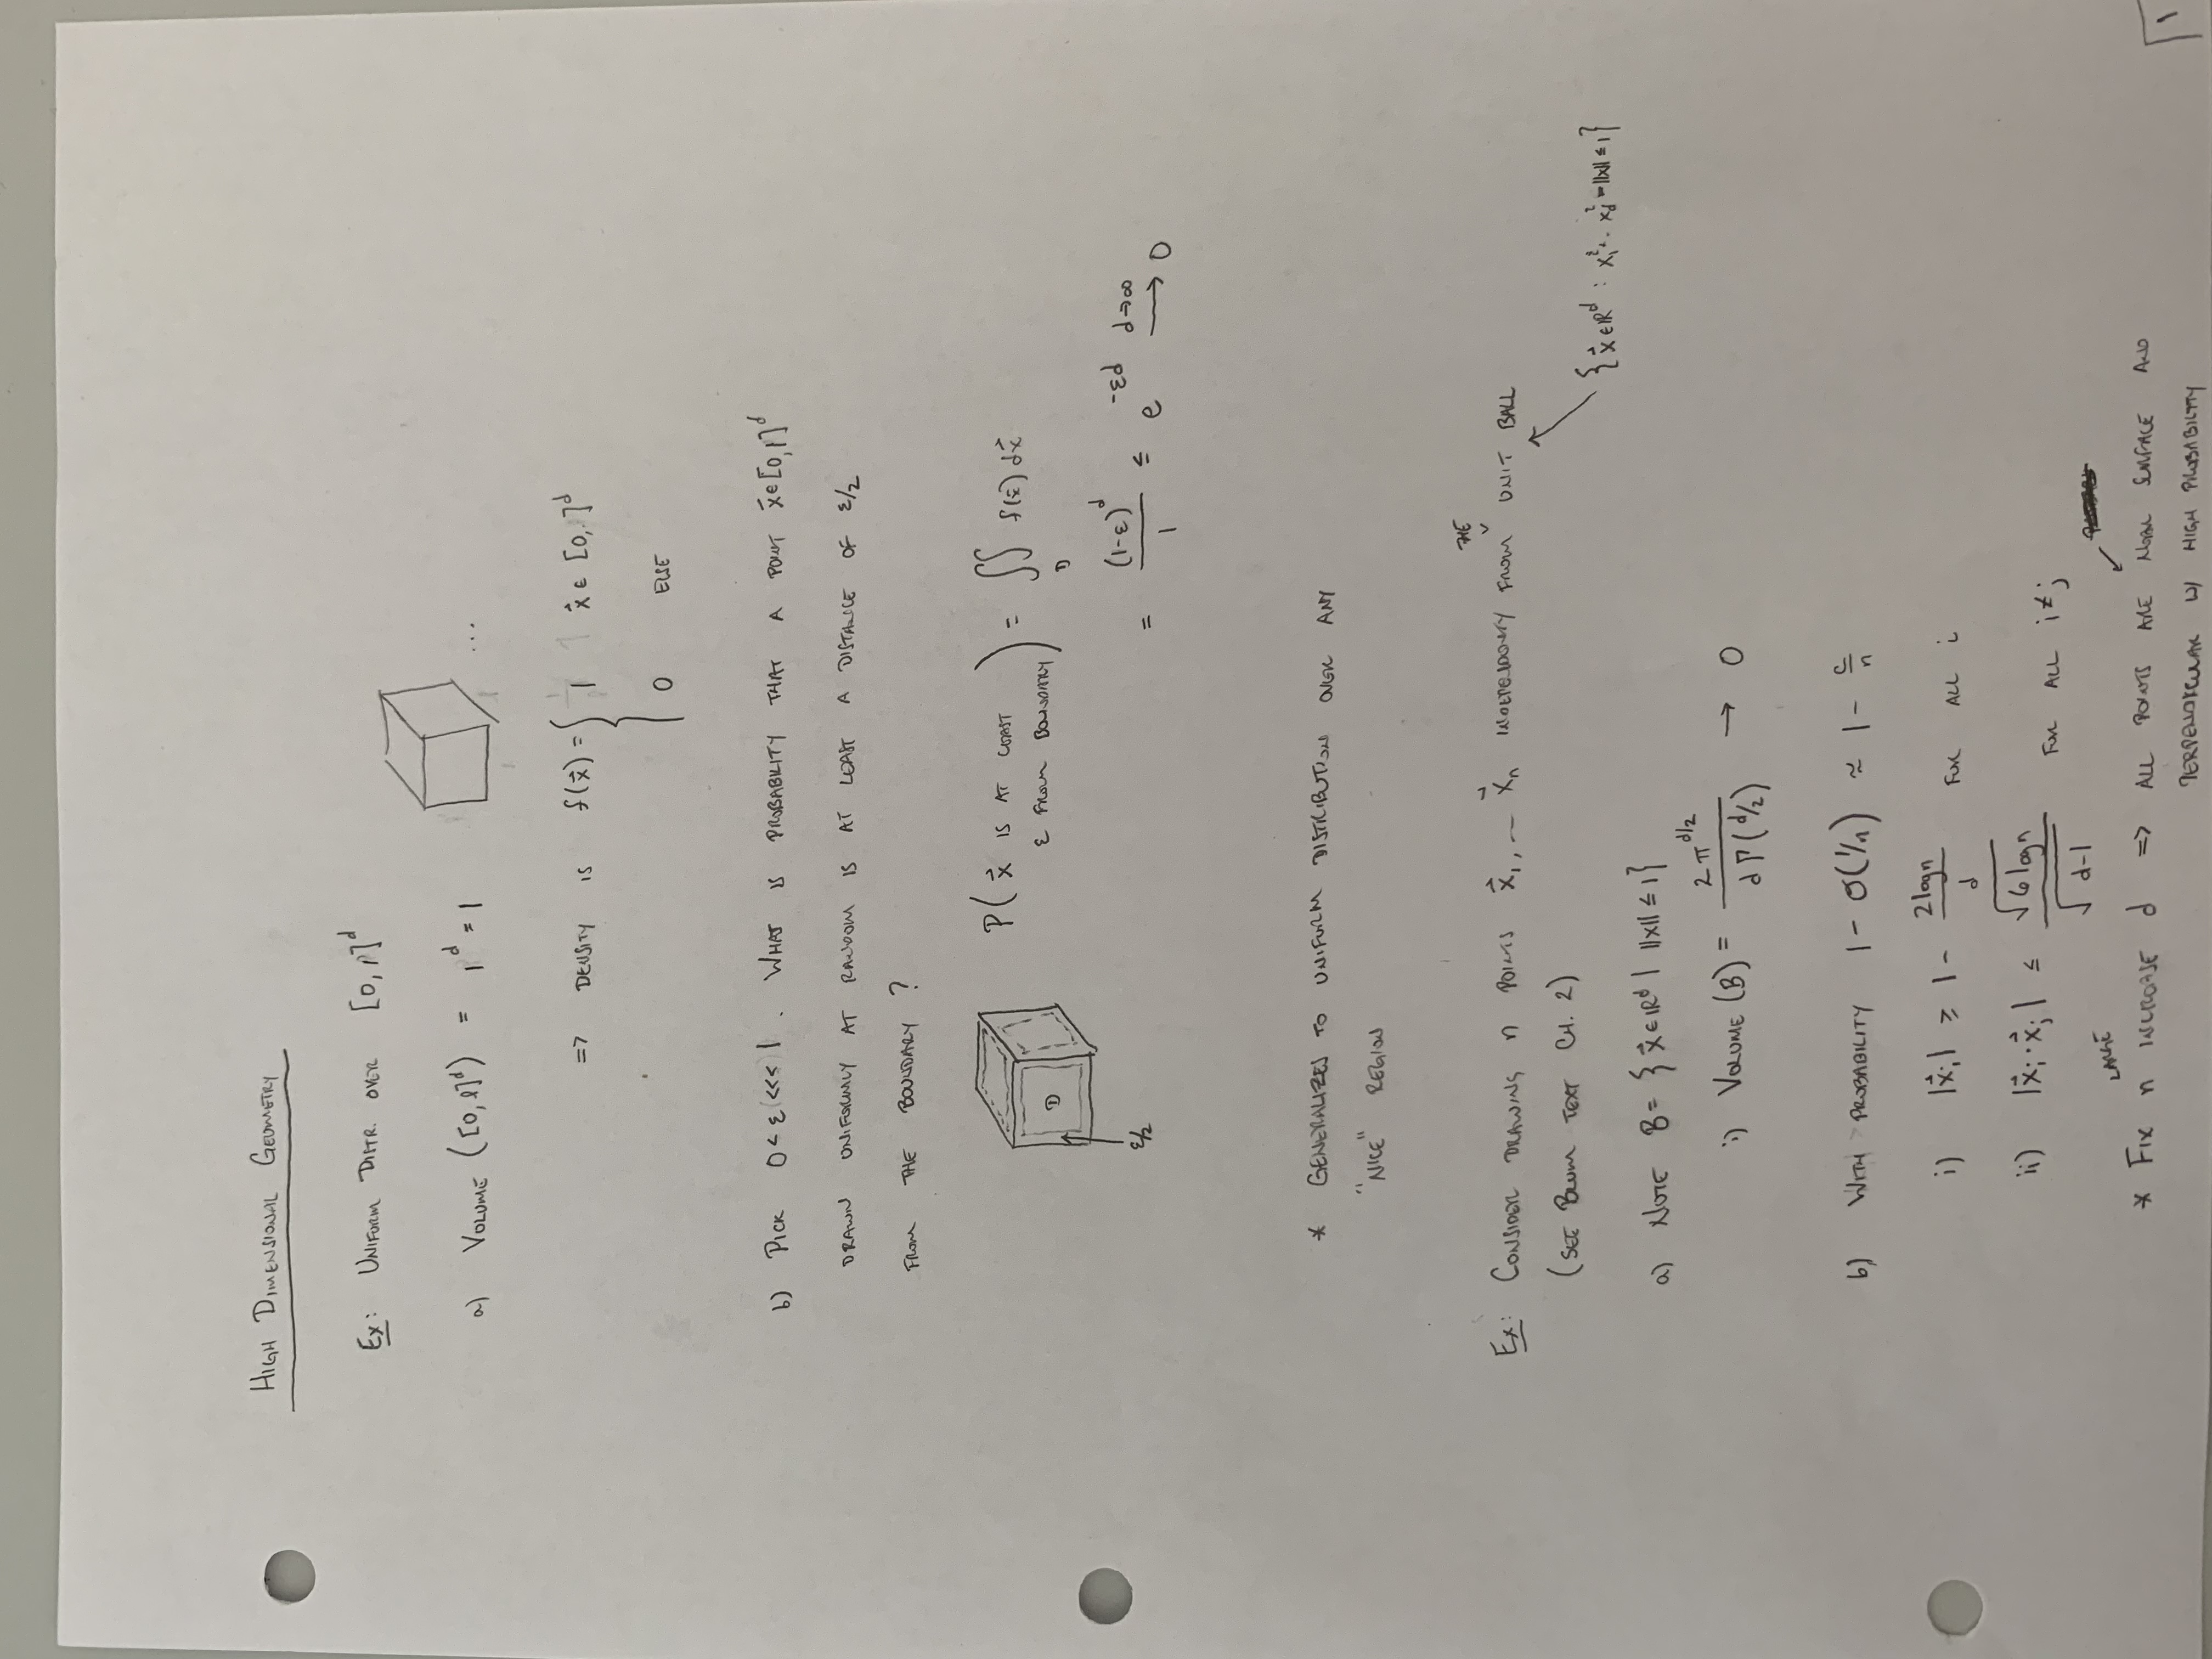 HIGH DIMENSIONAL GEOMETRY
Ex: UNIFORM DISTR. OVER [0,1]^d
a) VOLUME ([0,1]^d) = 1^d = 1
...
=> DENSITY IS f(x⃗) = { 1 x⃗ ∈ [0, ]^d
0 ELSE
b) PICK 0 < ε <<< 1. WHAT IS PROBABILITY THAT A POINT x⃗ ∈ [0,1]^d
DRAWN UNIFORMLY AT RANDOM IS AT LEAST A DISTANCE OF ε/2
FROM THE BOUNDARY?
D
ε/2
P( x⃗ IS AT LEAST ε FROM BOUNDARY ) = ∬_D f(x⃗) dx⃗
= (1-ε)^d / 1 ≤ e^{-εd} →^{d→∞} 0
* GENERALIZES TO UNIFORM DISTRIBUTION OVER ANY
"NICE" REGION
Ex: CONSIDER DRAWING n POINTS x⃗_1, ... x⃗_n INDEPENDENTLY FROM THE UNIT BALL
(SEE BLUM TEXT CH. 2)
{ x⃗ ∈ ℝ^d : x_1^2 + .. x_d^2 = ||x|| ≤ 1 }
a) NOTE B = { x⃗ ∈ ℝ^d | ||x|| ≤ 1 }
i) VOLUME (B) = 2π^{d/2} / dΓ(d/2) → 0
b) WITH PROBABILITY 1 - O(1/n) ≈ 1 - c/n
i) |x⃗_i| ≥ 1 - 2logn / d FOR ALL i
ii) |x⃗_i · x⃗_j| ≤ √6logn / √d-1 FOR ALL i≠j
* FIX LARGE n INCREASE d => ALL POINTS ARE NEAR SURFACE AND
PERPENDICULAR W/ HIGH PROBABILITY
1